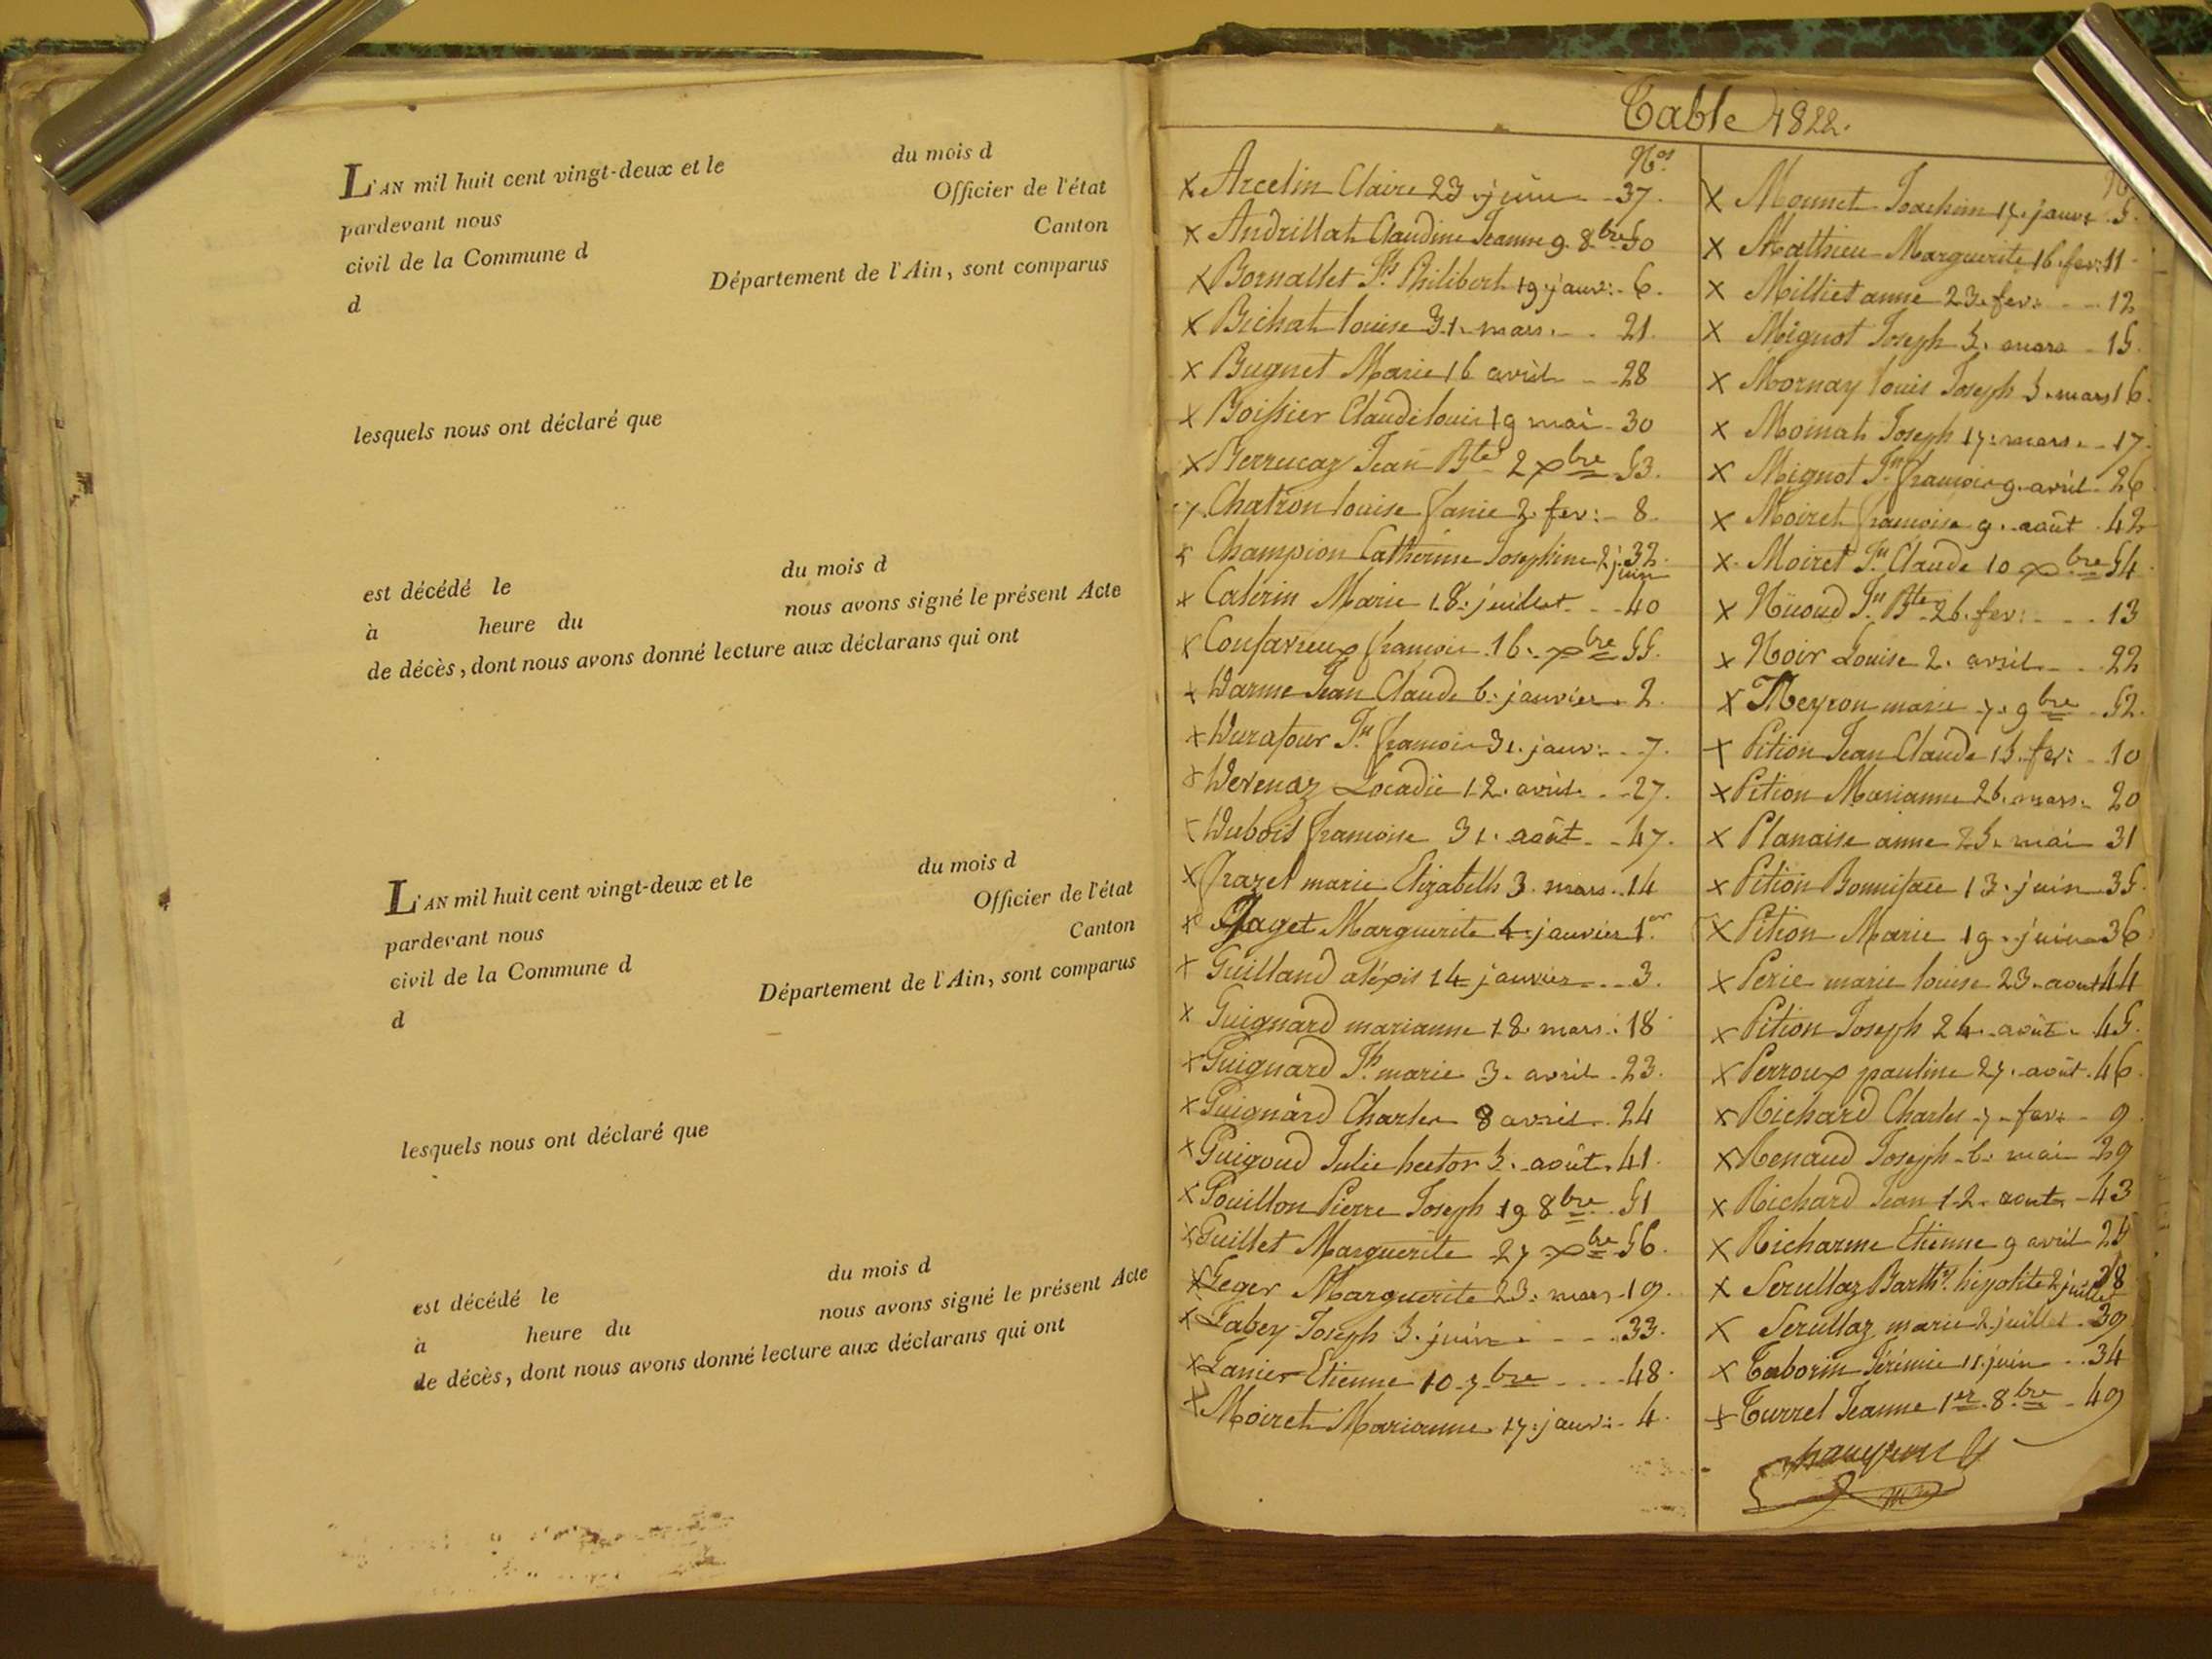 L'AN mil huit cent vingt-deux et le du mois d
pardevant nous Officier de l'état
civil de la Commune d Canton
d Département de l'Ain, sont comparus
lesquels nous ont déclaré que
est décédé le du mois d
à heure du nous avons signé le présent Acte
de décès, dont nous avons donné lecture aux déclarans qui ont
L'AN mil huit cent vingt-deux et le du mois d
pardevant nous Officier de l'état
civil de la Commune d Canton
d Département de l'Ain, sont comparus
lesquels nous ont déclaré que
est décédé le du mois d
à heure du nous avons signé le présent Acte
de décès, dont nous avons donné lecture aux déclarans qui ont
Table 1822.
Nos
x Arcelin Claire 23 juin 37.
x Andrillat Claudine Jeanne 9. 8bre 50
x Bornallet Ph. Philibert 19 janv: 6.
x Bichat louise 31. mars. 21.
x Bugnet Marie 16 avril 28
x Boissier Claude louis 19 mai 30
x Berrucaz Jean Bte 2 xbre 53.
x Chatron louise fanie 2. fev: 8.
x Champion Catherine Josephine 2 juin 32.
x Caterin Marie 18. juillet 40
x Confavreux francois 16. xbre 55.
x Darme Jean Claude 6. janvier 2.
x Durafour Jn francois 31. janv: 7.
x Devenaz Locadie 12. avril 27.
x Dubois francoise 31. août 47.
x frazet marie Elizabeth 3. mars. 14
x Gaget Marguerite 4. janvier 1er
x Guilland aléxis 14 janvier 3.
x Guignard marianne 18. mars. 18
x Guignard Ph. marie 3. avril 23.
x Guignard Charles 8 avril 24
x Guigoud Julie hector 5. août. 41.
x Gouillon Pierre Joseph 19 8bre 51
x Guillet Marguerite 27 xbre 56.
x Leger Marguerite 23. mars 19.
x Labey Joseph 5. juin 33.
x Lanier Etienne 10 7bre 48.
x Moiret Marianne 17. janv: 4.
x Monnet Joachim 17. janvr 5.
x Mathieu Marguerite 16. fev: 11
x Milliet anne 23. fev: 12
x Mignot Joseph 5. mars 15.
x Mornay louis Joseph 5. mars 16.
x Moinat Joseph 17. mars. 17.
x Mignot Jn francois 9. avril 26.
x Moiret francoise 9. août 42
x Moiret Jn Claude 10 xbre 54
x Nuoud Jn Bte 26. fev: 13
x Noir Louise 2. avril 22
x Neyron marie 7. 9bre 52.
x Pition Jean Claude 15. fev: 10
x Pition Marianne 26. mars. 20
x Planaise anne 25. mai 31
x Pition Bonniface 13. juin 35.
x Pition Marie 19. juin 36
x Perie marie louise 23. aout 44
x Pition Joseph 24. août. 45.
x Perroux pauline 27. août. 46.
x Richard Charles 7. fev: 9.
x Renaud Joseph 6. mai 29
x Richard Jean 12. aout 43
x Richarme Etienne 9 avril 25
x Serullaz Barthy hippolite 2 juillet 38
x Serullaz marie 2. juillet 39
x Taborin Jérémie 11. juin 34
x Turrel Jeanne 1er 8bre 49